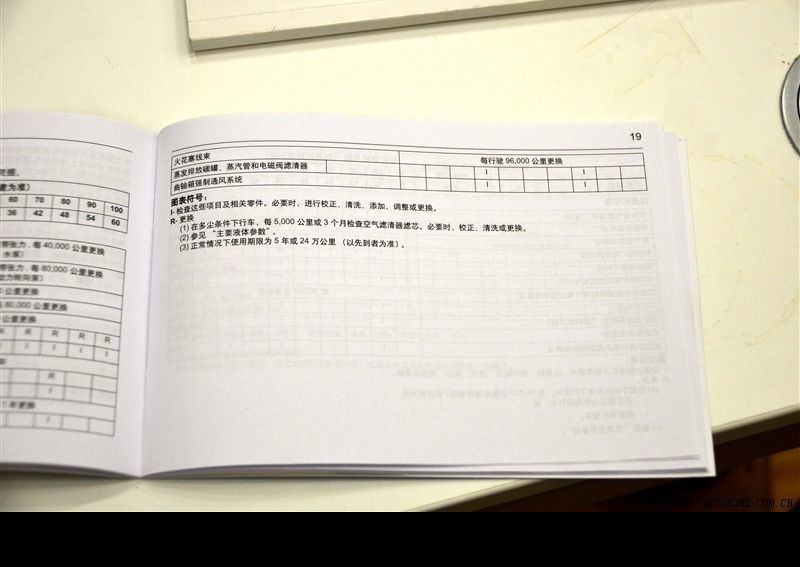 交脏。
查为准）
60 70 80 90 100
36 42 48 54 60
带张力，每 40,000 公里更换
水泵）
带张力，每 80,000 公里更换
动力转向泵）
公里更换
80,000 公里更换
公里更换
R R R R R
I I I I I
R
I
公里更换
I
19
火花塞线束 每行驶 96,000 公里更换
蒸发排放碳罐、蒸汽管和电磁阀滤清器 I I
曲轴箱强制通风系统 I I
图表符号：
I- 检查这些项目及相关零件。必要时，进行校正、清洗、添加、调整或更换。
R- 更换
(1) 在多尘条件下行车，每 5,000 公里或 3 个月检查空气滤清器滤芯。必要时，校正、清洗或更换。
(2) 参见 “主要液体参数”。
(3) 正常情况下使用期限为 5 年或 24 万公里 （以先到者为准）。
AUTOHOME.COM.CN